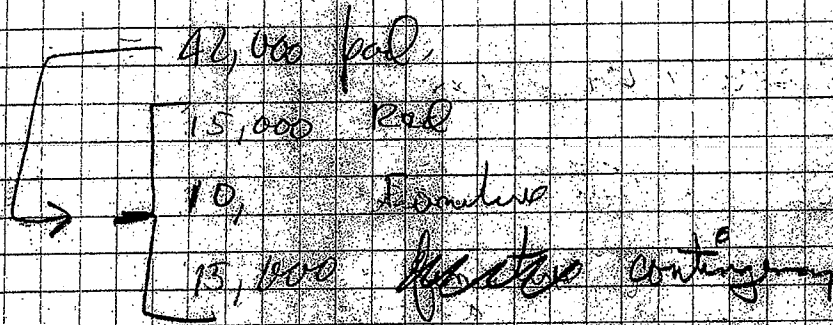 42,000 pad.
15,000 Rod
10, Furniture
15,000 contingency